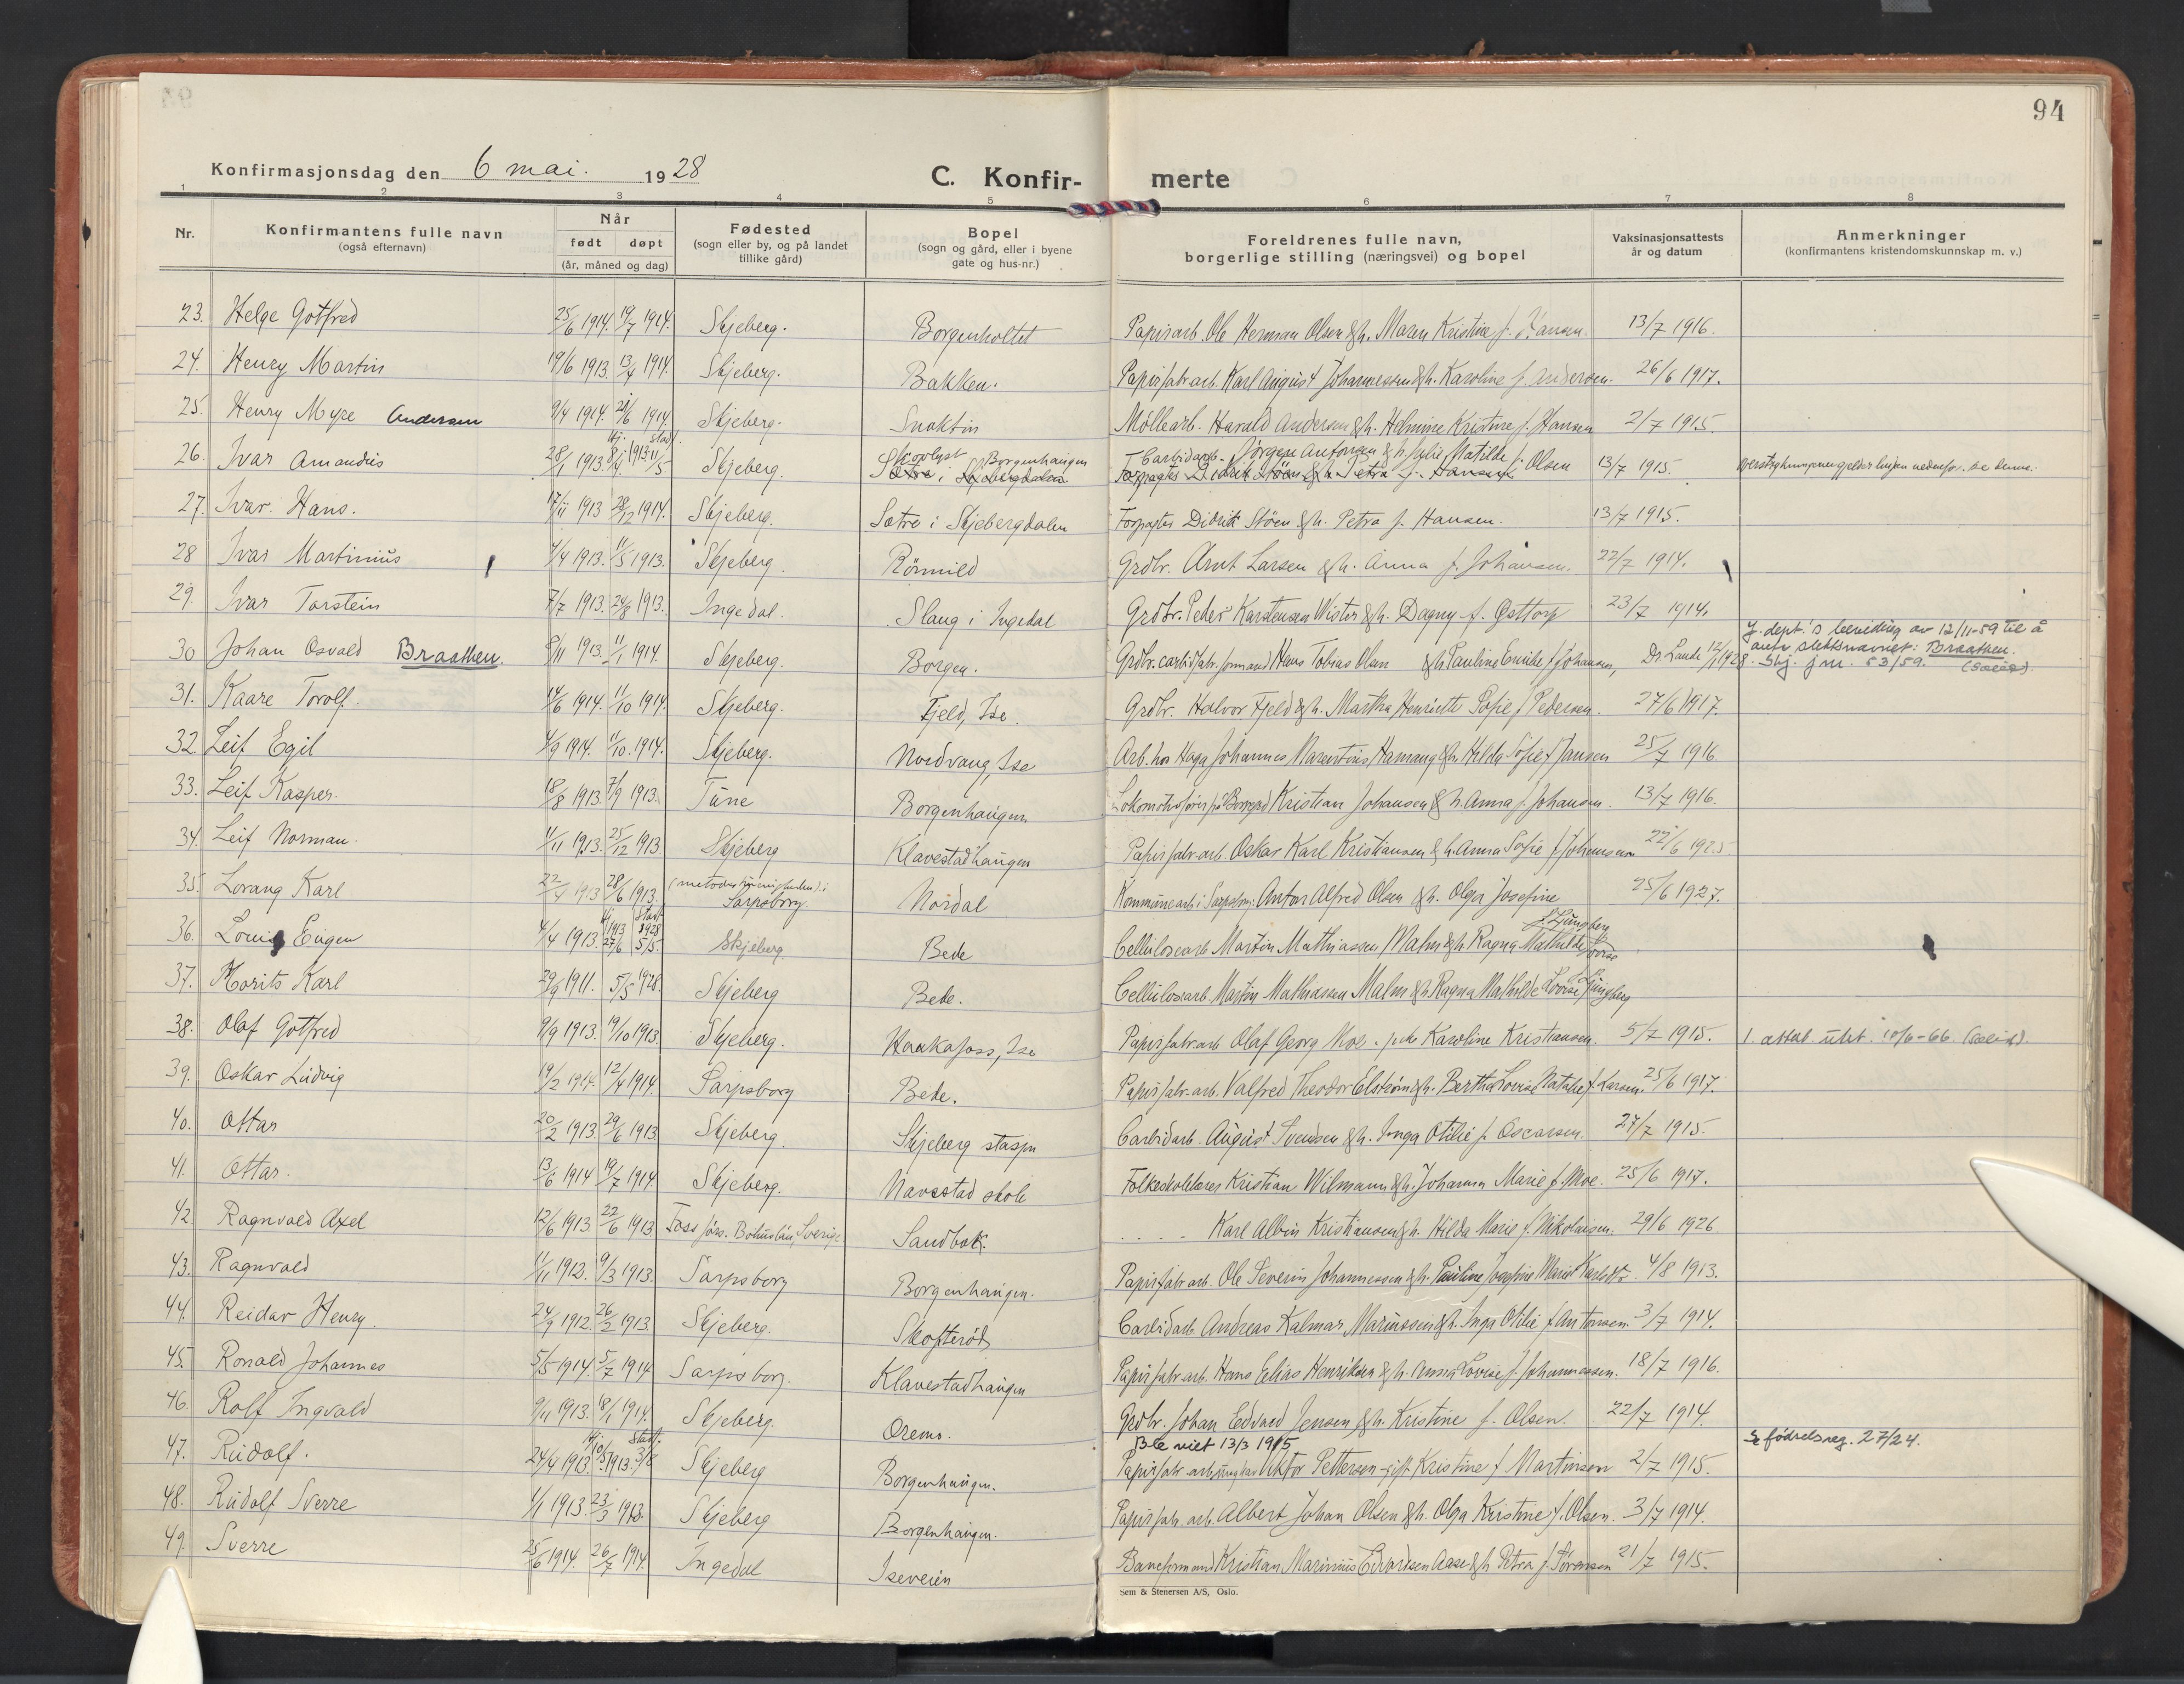 94
Konfirmasjonsdag den 6 mai. 1928 C. Konfir- merte
1 2 3 4 5 6 7 8
Nr. Konfirmantens fulle navn (også efternavn) Når født døpt (år, måned og dag) Fødested (sogn eller by, og på landet tillike gård) Bopel (sogn og gård, eller i byene gate og hus-nr.) Foreldrenes fulle navn, borgerlige stilling (næringsvei) og bopel Vaksinasjonsattests år og datum Anmerkninger (konfirmantens kristendomskunnskap m. v.)
23. Helge Gotfred 25/6 1914. 19/7 1914. Skjeberg. Borgenholtet Papirarb. Ole Herman Olsen & h. Maren Kristine f. Hansen. 13/7 1916.
24. Henry Martin 19/6 1913. 13/4 1914. Skjeberg. Bakken. Papirfabr.arb. Karl August Johannessen & h. Karoline f. Andersen. 26/6 1917.
25. Henry Myre Andersen 9/4 1914. 21/6 1914. Skjeberg. Snoktin Möllearb. Harald Andersen & h. Helmine Kristine f. Hansen 2/7 1915.
26. Ivar Amandus 28/1 1913. Hj. 8/4 1913 Stad. 11/5 Skjeberg. Skovlyst Borgenhaugen Sætre i Skjebergdalen Carbidarb. Jörgen Antonsen & h. Julie Matilde f. Olsen Forpagter Didrik Stöen & h. Petra f. Hansen 13/7 1915. overstrykningene gjelder linjen nedenfor. se denne.
27. Ivar Hans. 17/11 1913 28/12 1914. Skjeberg. Sætre i Skjebergdalen Forpagter Didrik Stöen & h. Petra f. Hansen. 13/7 1915.
28 Ivar Martinius 4/4 1913. 11/5 1913. Skjeberg. Römnild Grdbr. Arnt Larsen & h. Anna f. Johansen. 22/7 1914.
29. Ivar Torstein 7/7 1913. 24/8 1913. Ingedal. Slang i Ingedal Grdbr. Peder Karstensen Wister & h. Dagny f. Osttorp 23/7 1914.
30 Johan Osvald Braathen. 8/11 1913. 11/1 1914. Skjeberg. Borgen. Grdbr. carbidfabr.formand Hans Tobias Olsen & h. Pauline Emilie f. Johansen, Dr. Lande 12/1 1928. J. dept.'s bevilling av 12/11-59 til å anta slektsnavnet: Braathen. Skj. jnr. 53/59.
31. Kaare Torolf. 14/6 1914. 11/10 1914. Skjeberg. Fjeld, Ise. Grdbr. Halvor Fjeld & h. Martha Henriette Sofie f. Pedersen. 27/6 1917.
32. Leif Egil 4/9 1914. 11/10. 1914. Skjeberg. Nordvang, Ise Arb. hos Haga Johannes Marentius Hamang & h. Hilda Sofie f. Jansen 25/7 1916.
33. Leif Kasper. 18/8 1913. 7/9 1913. Tune Borgenhaugen Lokomotivförer på Borregd Kristian Johansen & h. Anna f. Johansen. 13/7 1916.
34. Leif Norman. 11/11 1913. 25/12 1913. Skjeberg Klavestadhaugen Papirfabr.arb. Oskar Karl Kristiansen & h. Anna Sofie f. Johansen 22/6 1925
35. Lorang Karl 22/4 1913 28/6 1913. (metodistmenigheden) i Sarpsborg. Nordal Kommunearb. i Sarpsborg: Anton Alfred Olsen & h. Olga Josefine 25/6 1927.
36. Louis Eugen 4/4 1913. Hj. 1913 27/6 Stad. 1928 5/5. Skjeberg Bede Cellulosearb. Martin Mathiassen Malm & h. Ragna Mathilde Lovise f. Ljungberg
37. Morits Karl 29/9 1911. 5/5 1928. Skjeberg Bede. Cellulosearb. Martin Mathiassen Malm & h. Ragna Mathilde Lovise f. Ljungberg
38. Olaf Gotfred 9/9 1913. 19/10 1913. Skjeberg. Haakafoss, Ise Papirfabr.arb Olaf Georg Moe - pike Karoline Kristiansen. 5/7 1915. 1. attest. utst. 10/6-66.
39. Oskar Ludvig 19/2 1914. 12/4 1914. Sarpsborg Bede. Papirfabr.arb. Valfred Theodor Elström & h. Bertha Lovise Natalie f. Larsen. 25/6 1917.
40. Ottar 20/2 1913. 29/6 1913. Skjeberg. Skjeberg stasjon Carbidarb. August Svendsen & h. Inga Otilie f. Oscarsen. 27/7 1915.
41. Ottar. 13/6 1914 19/7 1914 Skjeberg. Navestad skole Folkeskolelærer Kristian Wilmann & h. Johanna Marie f. Moe. 25/6 1917.
42. Ragnvald Axel 12/6 1913 22/6 1913. Foss fors. Bohuslän, Sverige Sandbak. Karl Albin Kristiansen & h. Hilda Marie f. Nikolaisen. 29/6 1926
43. Ragnvald 11/11 1912. 9/3 1913. Sarpsborg Borgenhaugen. Papirfabr.arb. Ole Severin Johannessen & h. Pauline Josefine Marie f. Karlsdtr. 4/8 1913.
44. Reidar Henry. 24/9 1912. 26/2 1913. Skjeberg. Skofteröd Carbidarb. Andreas Kalmar Mariussen & h. Inga Otilie f. Antonsen. 3/7 1914.
45. Ronald Johannes 5/5 1914. 5/7 1914 Sarpsborg. Klavestadhaugen Papirfabr.arb. Hans Elias Henriksen & h. Anna Lovise f. Johannessen. 18/7 1916.
46. Rolf Ingvald 9/11 1913. 18/1 1914. Skjeberg. Oremo. Grdbr. Johan Edvard Jensen & h. Kristine f. Olsen. 22/7 1914.
47. Rudolf. 24/4 1913. Hj. 10/5 1913. Stad. 3/8 Skjeberg Borgenhaugen. Ble viet 13/3 1915 Papirfabr.arb. ungkar Viktor Pettersen - gift Kristine f. Martinsen 2/7 1915. Se födselsreg. 27/24.
48. Rudolf Sverre 1/1 1913. 23/3 1913. Skjeberg Borgenhaugen. Papirfabr.arb. Albert Johan Olsen & h. Olga Kristine f. Olsen. 3/7 1914.
49. Sverre 25/6 1914. 26/7 1914. Ingedal Iseveien Baneformand Kristian Marinius Edvardsen Aase & h. Petra f. Sörensen 21/7 1915.
Sem & Stenersen A/S, Oslo.